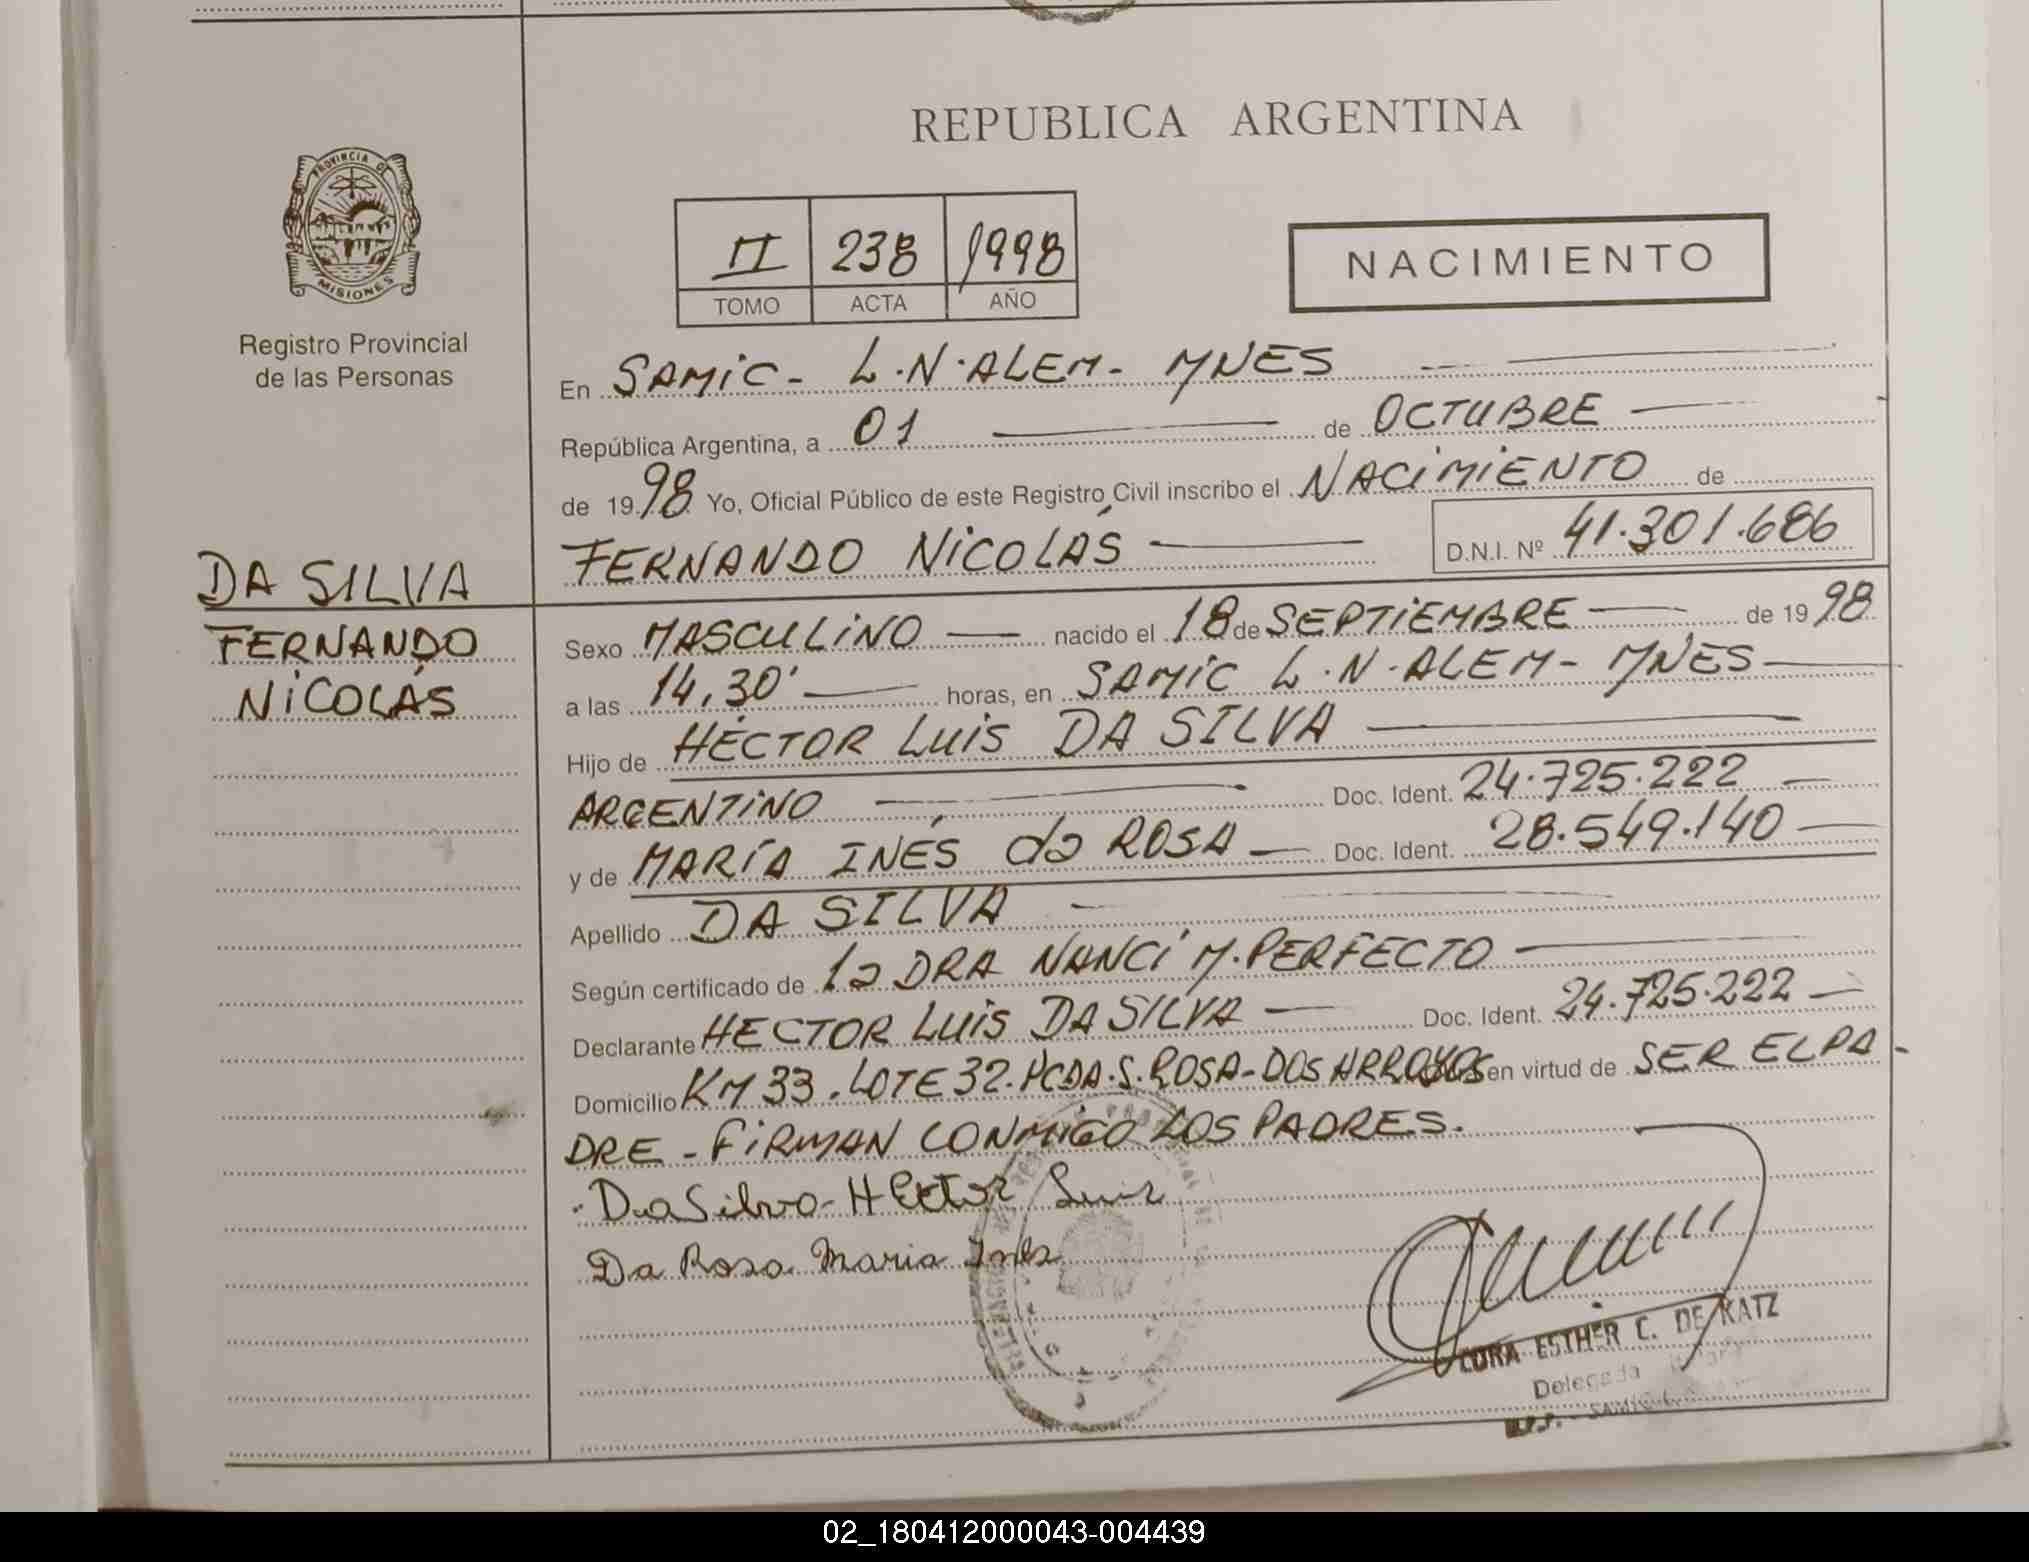 REPUBLICA ARGENTINA
PROVINCIA DE
MISIONES
Registro Provincial
de las Personas
II 238 1998
TOMO ACTA AÑO
NACIMIENTO
En SAMIC - L.N.ALEM - MNES
República Argentina, a 01 de OCTUBRE
de 1998 Yo, Oficial Público de este Registro Civil inscribo el NACIMIENTO de
FERNANDO NICOLÁS D.N.I. Nº 41.301.686
DA SILVA
FERNANDO
NICOLÁS
Sexo MASCULINO nacido el 18 de SEPTIEMBRE de 1998
a las 14,30' horas, en SAMIC L.N.ALEM - MNES
Hijo de HÉCTOR LUIS DA SILVA
ARGENTINO Doc. Ident. 24.725.222
y de MARÍA INÉS da ROSA Doc. Ident. 28.549.140
Apellido DA SILVA
Según certificado de la DRA NANCI M. PERFECTO
Declarante HECTOR LUIS DA SILVA Doc. Ident. 24.725.222
Domicilio KM 33. LOTE 32. PCDA. S. ROSA - DOS ARROYOS en virtud de SER EL PA-
DRE - FIRMAN CONMIGO LOS PADRES.
Da Silva Hector Luis
Da Rosa Maria Ines
CORA ESTHER C. DE KATZ
Delegada
02_180412000043-004439